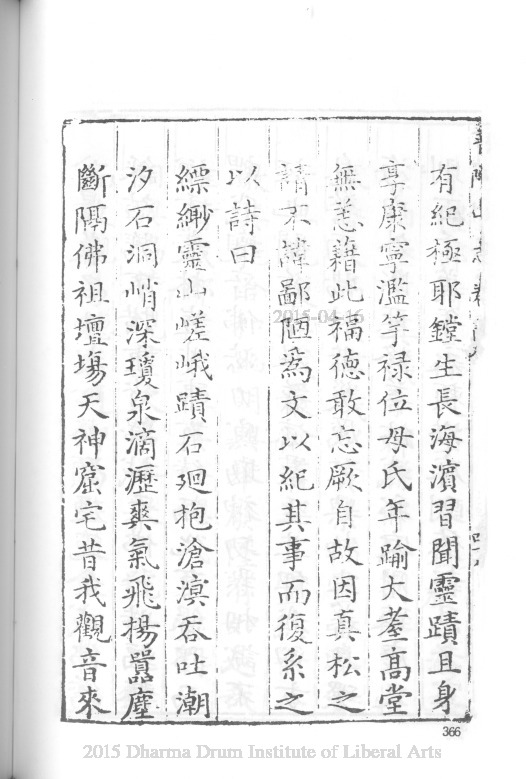 有紀極耶鏜生長海濱習聞靈蹟且身
享康寧濫竽禄位母氏年踰大耋髙堂
無恙藉此福德敢忘厥自故因真松之
請不諱鄙陋爲文以紀其事而復系之
以詩曰
縹緲靈山嵯峨蹟石廻抱滄溟吞吐潮
汐石洞峭深瓊泉滴瀝爽氣飛揚囂塵
斷隔佛祖壇場天神窟宅昔我觀音來
366
2015-04-16
2015 Dharma Drum Institute of Liberal Arts